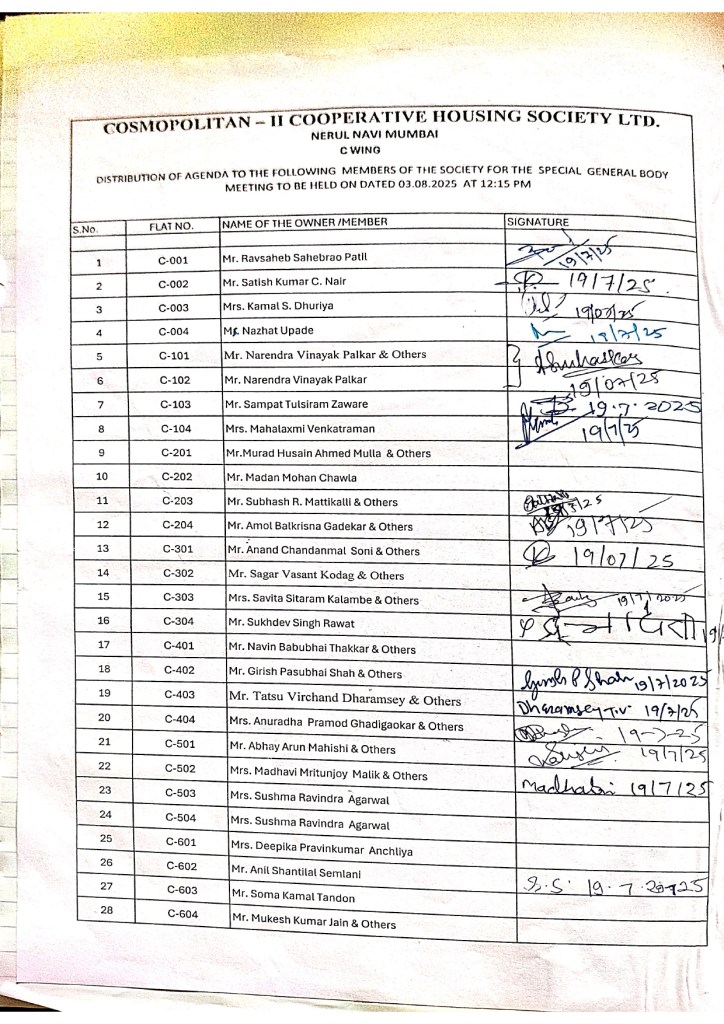 COSMOPOLITAN – II COOPERATIVE HOUSING SOCIETY LTD.
NERUL NAVI MUMBAI
C WING
DISTRIBUTION OF AGENDA TO THE FOLLOWING MEMBERS OF THE SOCIETY FOR THE SPECIAL GENERAL BODY
MEETING TO BE HELD ON DATED 03.08.2025 AT 12:15 PM
S.No. FLAT NO. NAME OF THE OWNER /MEMBER SIGNATURE
1 C-001 Mr. Ravsaheb Sahebrao Patil 19/7/25
2 C-002 Mr. Satish Kumar C. Nair 19/7/25
3 C-003 Mrs. Kamal S. Dhuriya 19/07/25
4 C-004 Nazhat Upade 19/7/25
5 C-101 Mr. Narendra Vinayak Palkar & Others
6 C-102 Mr. Narendra Vinayak Palkar 19/07/25
7 C-103 Mr. Sampat Tulsiram Zaware 19.7.2025
8 C-104 Mrs. Mahalaxmi Venkatraman 19/7/25
9 C-201 Mr.Murad Husain Ahmed Mulla & Others
10 C-202 Mr. Madan Mohan Chawla
11 C-203 Mr. Subhash R. Mattikalli & Others
12 C-204 Mr. Amol Balkrisna Gadekar & Others 19/7/25
13 C-301 Mr. Anand Chandanmal Soni & Others 19/07/25
14 C-302 Mr. Sagar Vasant Kodag & Others
15 C-303 Mrs. Savita Sitaram Kalambe & Others 19/7/2025
16 C-304 Mr. Sukhdev Singh Rawat
17 C-401 Mr. Navin Babubhai Thakkar & Others
18 C-402 Mr. Girish Pasubhai Shah & Others Girish P Shah 19/7/2025
19 C-403 Mr. Tatsu Virchand Dharamsey & Others Dharamsey T.V. 19/7/25
20 C-404 Mrs. Anuradha Pramod Ghadigaokar & Others 19-7-25
21 C-501 Mr. Abhay Arun Mahishi & Others 19/7/25
22 C-502 Mrs. Madhavi Mritunjoy Malik & Others 19/7/25
23 C-503 Mrs. Sushma Ravindra Agarwal
24 C-504 Mrs. Sushma Ravindra Agarwal
25 C-601 Mrs. Deepika Pravinkumar Anchliya
26 C-602 Mr. Anil Shantilal Semlani
27 C-603 Mr. Soma Kamal Tandon 19.7.2025
28 C-604 Mr. Mukesh Kumar Jain & Others